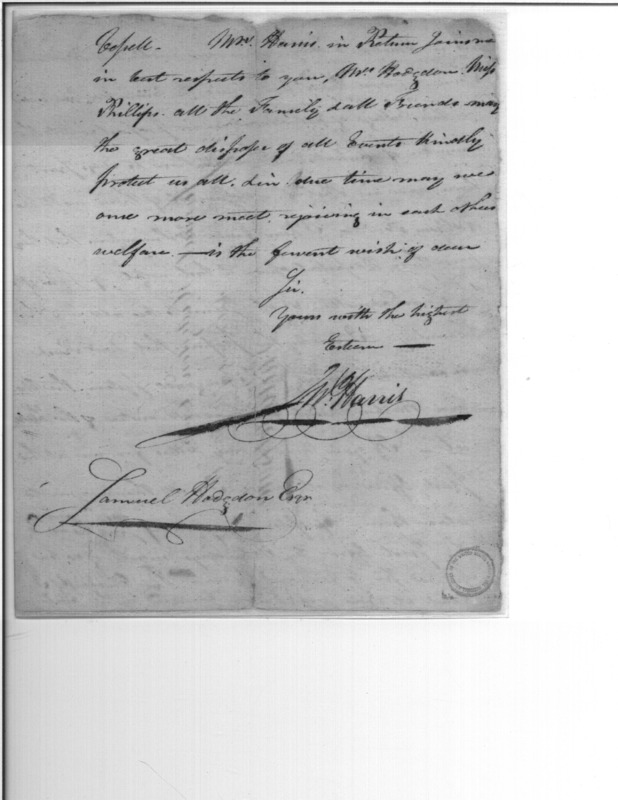 Mrs. Harris in Return Joins me
in best respects to you, Mrs. Hodgdon Miss
Phillips all the Family & all Friends may
the great disposer of all Events kindly
protect us all, & in due time may we
once more meet, rejoicing in each others
welfare — is the fervent wish of dear
Sir.
Yours with the highest
Esteem —
Wm. Harris
Samuel Hodgdon Esqr